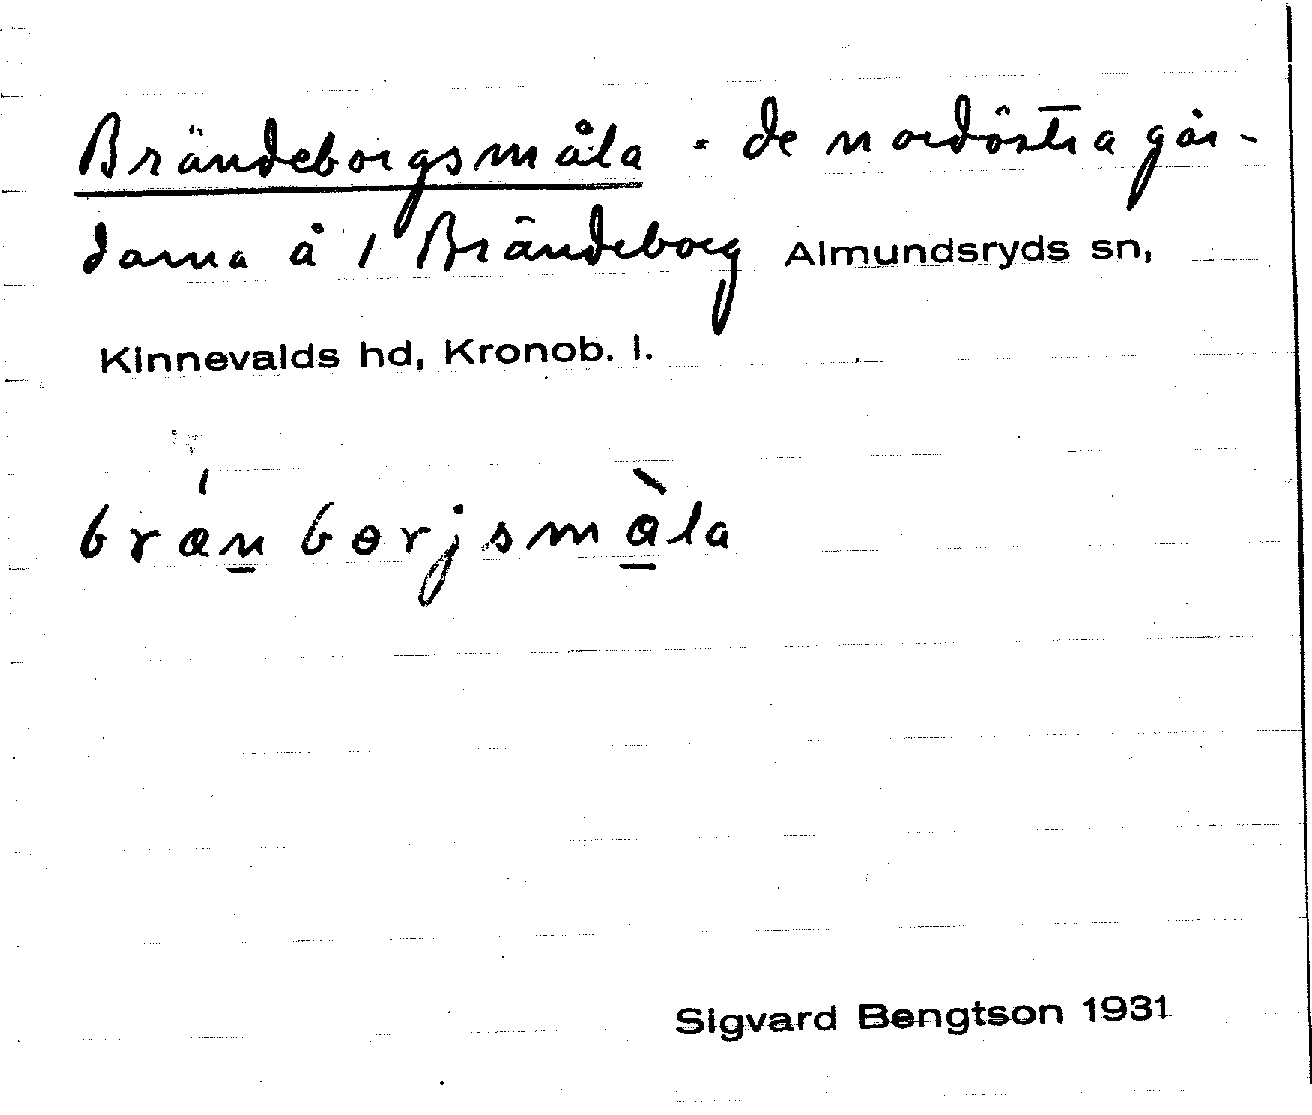 Brändeborgsmåla - de nordöstra går-
darna å 1 Brändeborg Almundsryds sn,
Kinnevalds hd, Kronob. l.
brǽn̲bɵrjsmà̲la
Sigvard Bengtson 1931